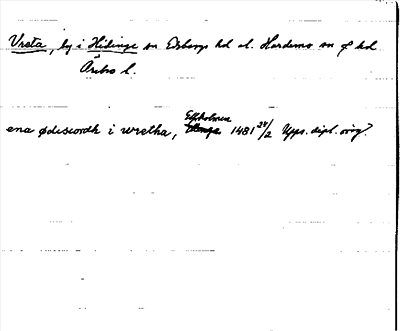 Vreta, by i Hidinge sn Edsbergs hd el. Hardemo sn o hd
Örebro l.
Elfkolmen
ena ödiscordh i wretha, 1481 24/2 Upps. dipl. orig?